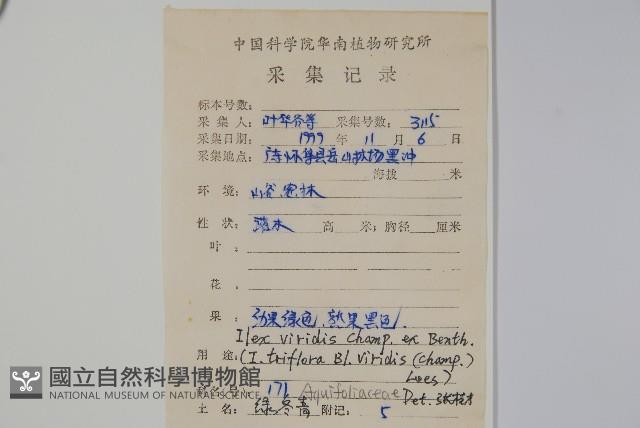 中国科学院华南植物研究所
采集记录
标本号数：
采集人：叶华谷等 采集号数：3115
采集日期：1999 年 11 月 6 日
采集地点：广东怀集县岳山林场黑冲
海拔 米
环境：山谷，密林
性状：灌木 高 米；胸径 厘米
叶：
花：
果：幼果绿色，熟果黑色．
Ilex viridis Champ. ex Benth.
用途：(I. triflora Bl. viridis (Champ.)
Loes)
171 Aquifoliaceae Det. 张
土名：绿冬青 附记： 5
國立自然科學博物館
NATIONAL MUSEUM OF NATURAL SCIENCE